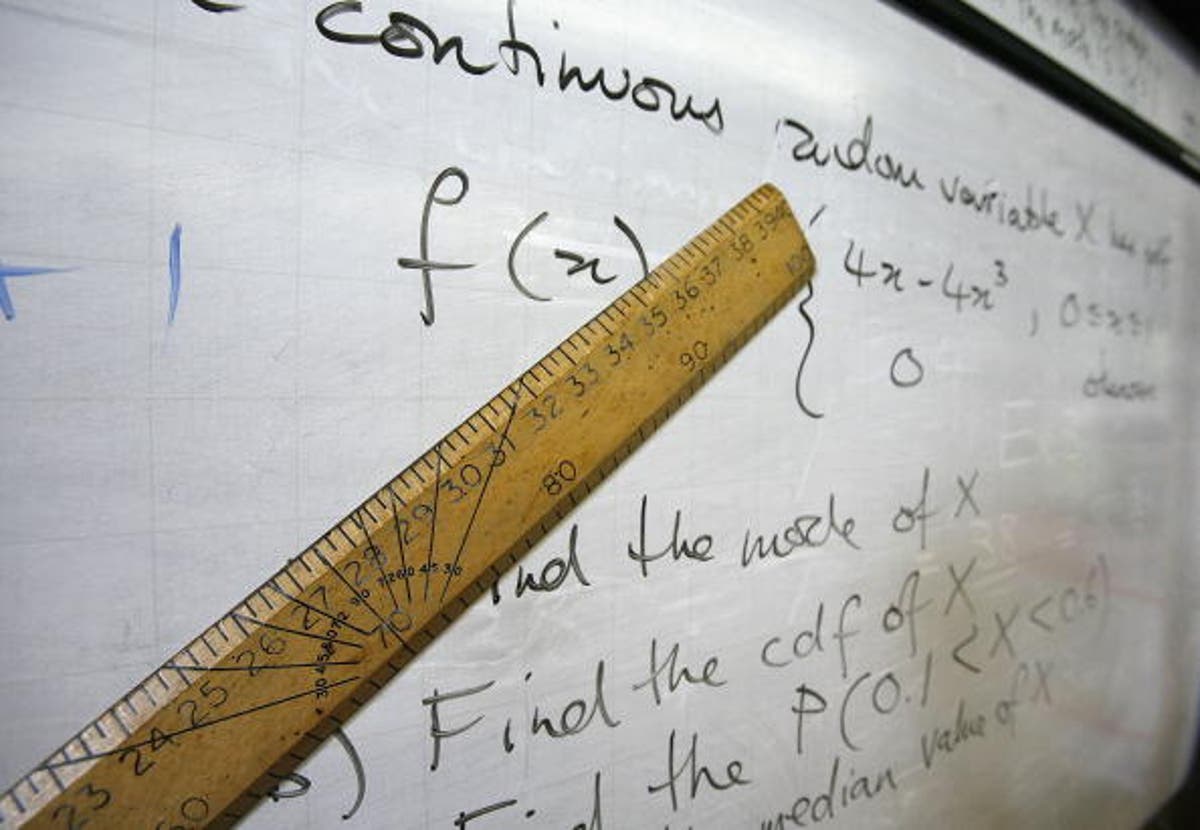 continuous random variable X has pdf
f(x) { 4x - 4x³ , 0≤x≤1
0 otherwise
Find the mode of X
b) Find the cdf of X
Find the P(0.1 < X < 0.6)
the median value of X
+ 1
23 24 25 26 27 28 29 30 31 32 33 34 35 36 37 38 39
70 80 90 100